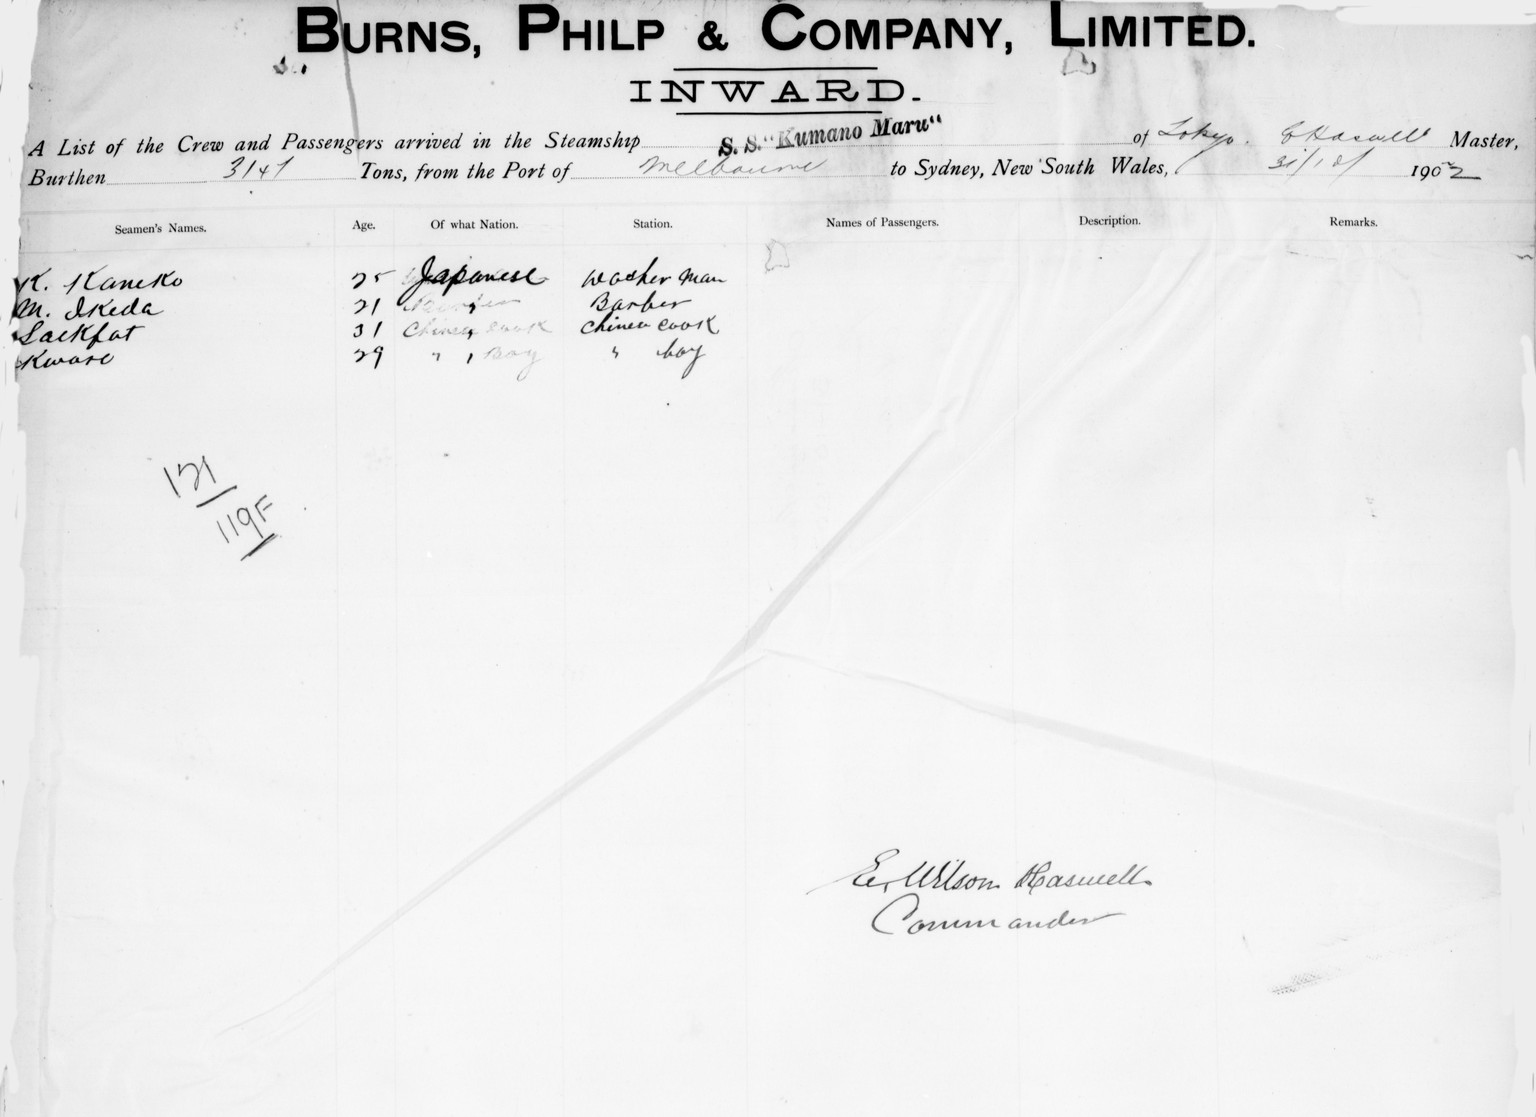 BURNS, PHILP & COMPANY, LIMITED.
INWARD.
A List of the Crew and Passengers arrived in the Steamship S. S. "Kumano Maru" of Tokyo. E Haswell Master,
Burthen 3147 Tons, from the Port of Melbourne to Sydney, New South Wales, 31/10/ 1902
Seamen's Names. Age. Of what Nation. Station. Names of Passengers. Description. Remarks.
K. Kaneko 25 Japanese Washer man
M. Ikeda 21 " Barber
Sackfat 31 " Chinese cook
Kware 29 " " boy
121
119F
E. Wilson Haswell
Commander